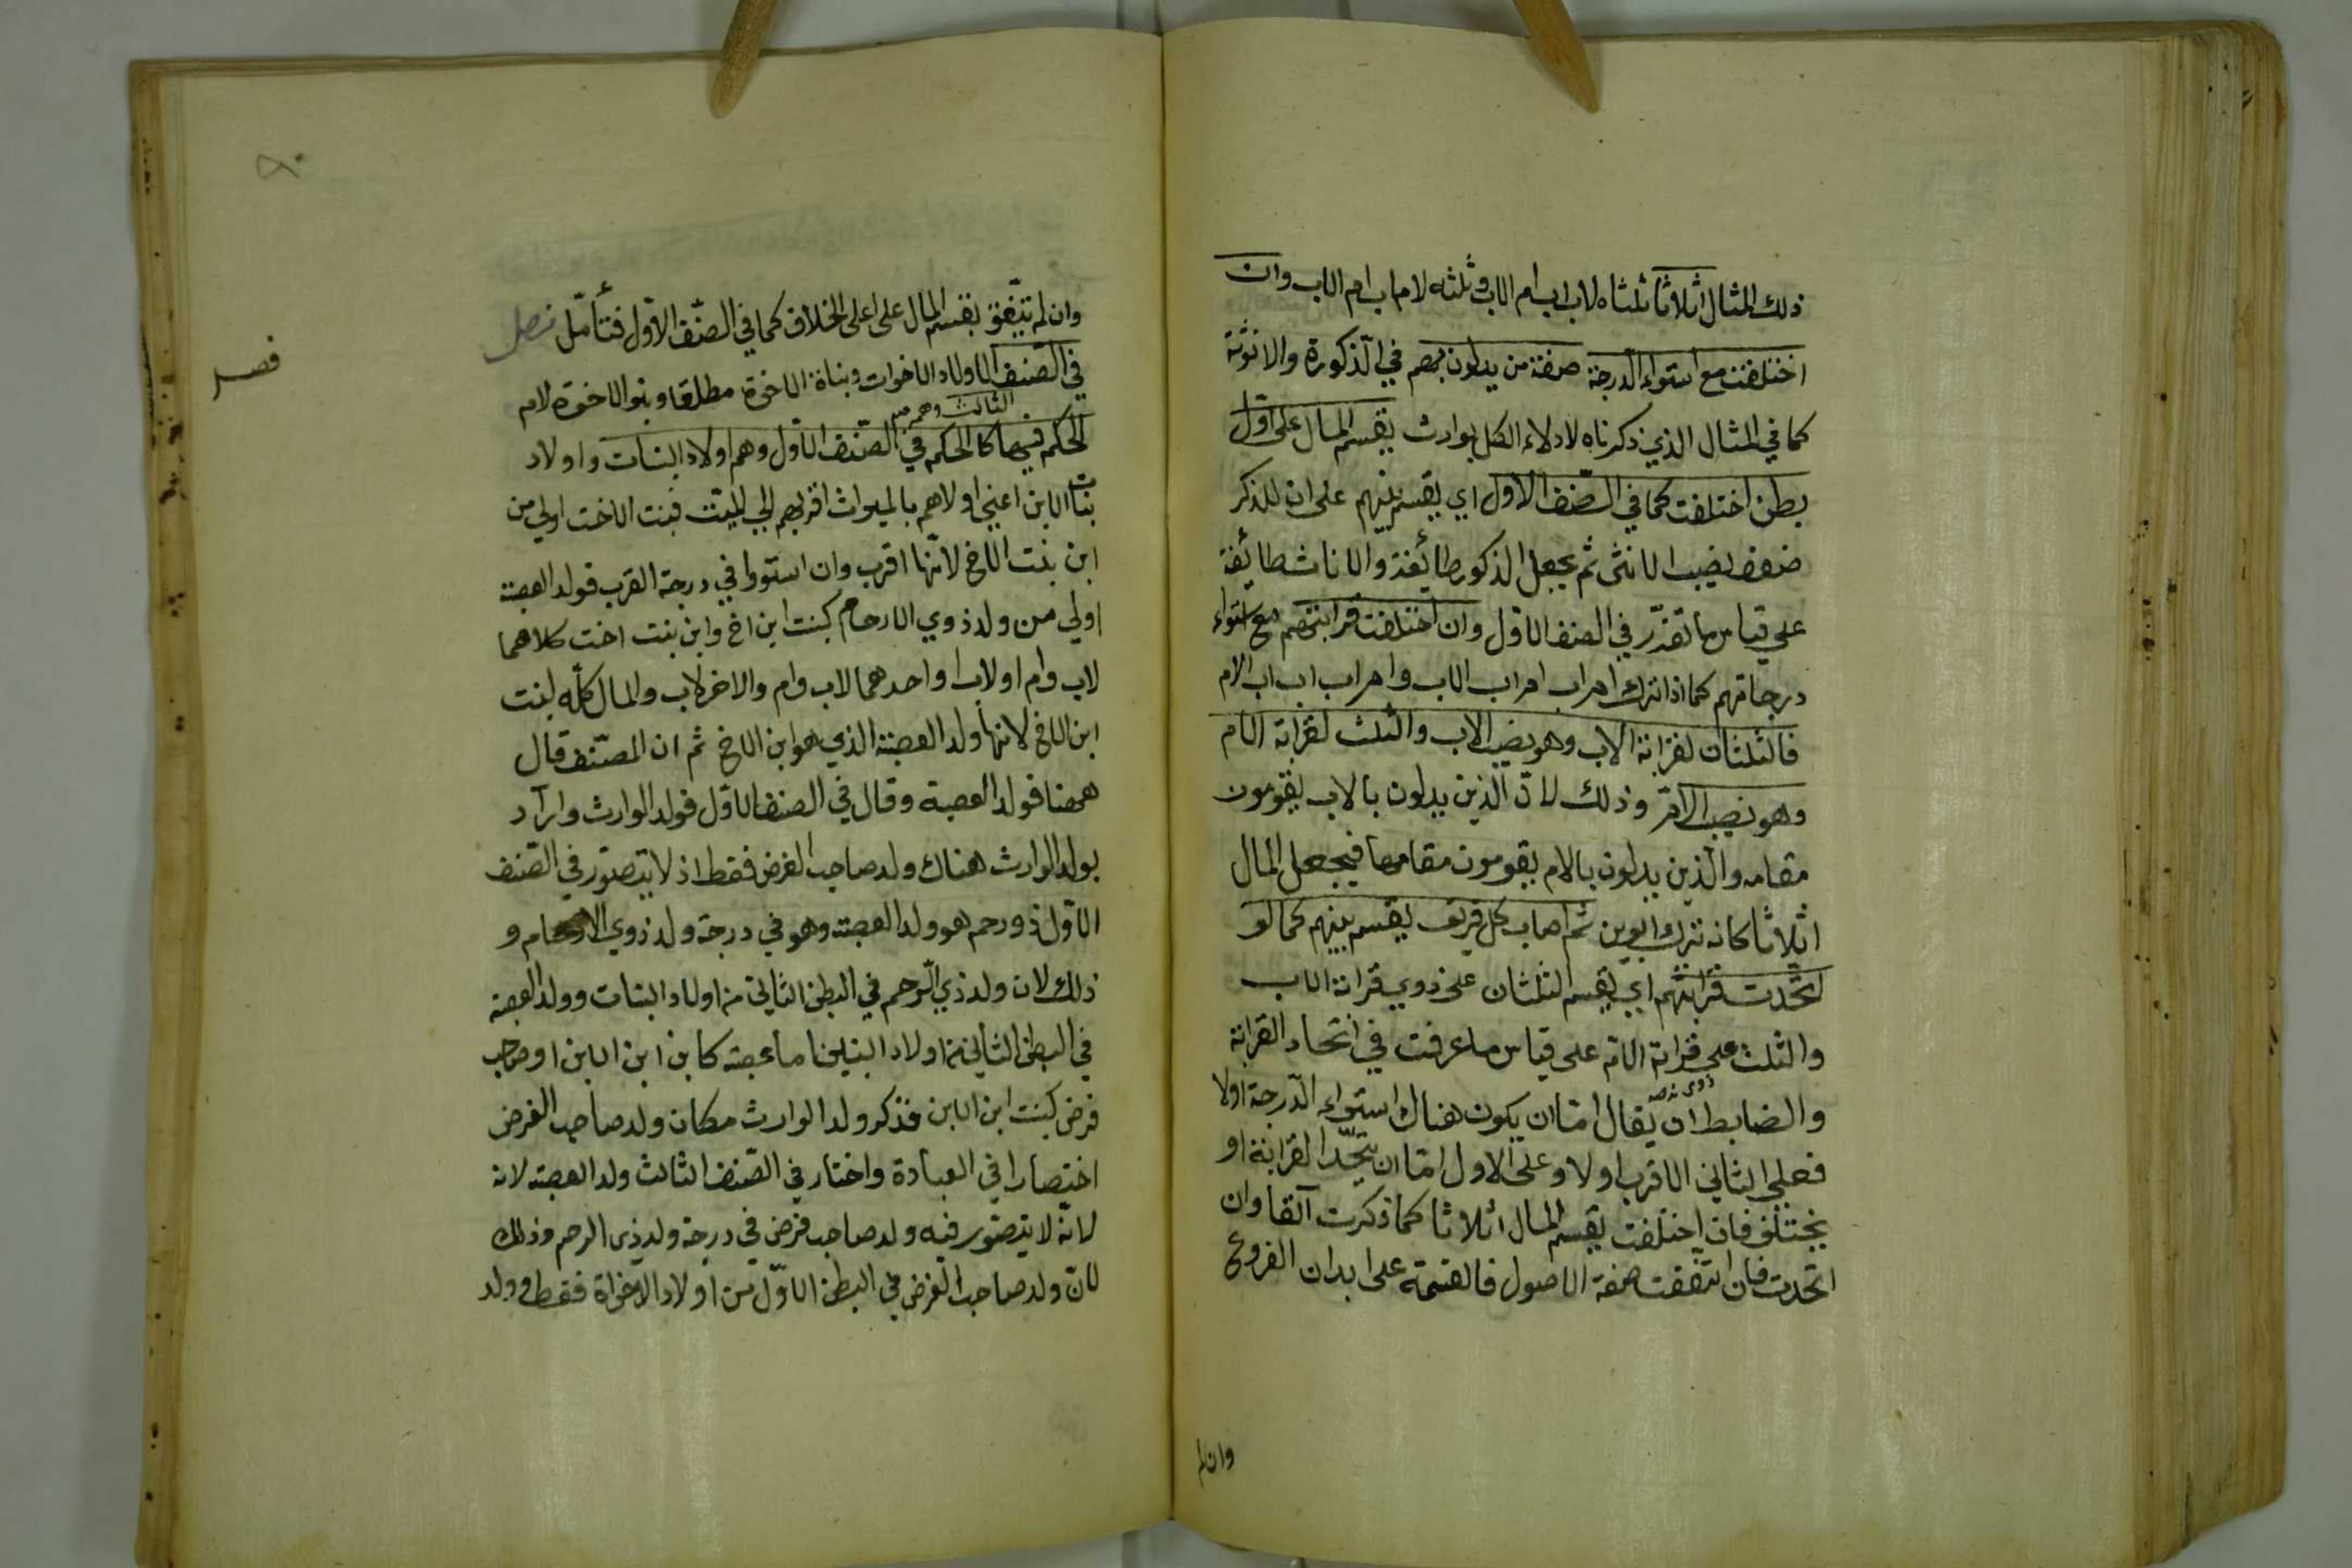 ذلك المثال اثلاثا ثلثاه لاب اب ام الاب وثلثه لام اب ام الاب وان
اختلفت مع استواء الدرجة صفة من يدلون بهم في الذكورة والانوثة
كما في المثال الذي ذكرناه لادلاء الكل بوارث يقسم المال على اول
بطن اختلفت كما في الصنف الاول اي يقسم بينهم على ان للذكر
ضعف نصيب الانثى ثم يجعل الذكور طائفة والاناث طائفة
على قياس ما تقرر في الصنف الاول وان اختلفت قرابتهم مع استواء
درجاتهم كما اذا ترك ام اب ام اب الاب وام اب اب اب الام
فالثلثان لقرابة الاب وهو نصيب الاب والثلث لقرابة الام
وهو نصيب الام وذلك لان الذين يدلون بالاب يقومون
مقامه والذين يدلون بالام يقومون مقامها فيجعل المال
اثلاثا كانه ترك ابوين ثم ما اصاب كل فريق يقسم بينهم كما لو
اتحدت قرابتهم اي يقسم الثلثان على ذوي قرابة الاب
والثلث على ذوي قرابة الام على قياس ما عرفت في اتحاد القرابة
والضابط ان يقال اما ان يكون هناك استواء الدرجة اولا
فعلى الثاني الاقرب اولا وعلى الاول اما ان يتحد القرابة او
يختلف فان اختلفت يقسم المال اثلاثا كما ذكرت آنفا وان
اتحدت فان اتفقت صفة الاصول فالقسمة على ابدان الفروع
وان لم
وان لم تتفق يقسم المال على اعلى الخلاف كما في الصنف الاول فتأمل فصل
فصل
في الصنف الثالث وهم اولاد الاخوات وبناة الاخوة مطلقا وبنو الاخوة لام
الحكم فيها كالحكم في الصنف الاول وهم اولاد البنات واولاد
بنات الابن اعني اولاهم بالميراث اقربهم الي الميت فبنت الاخت اولي من
ابن بنت الاخ لانها اقرب وان استووا في درجة القرب فولد العصبة
اولي من ولد ذوي الارحام كبنت ابن اخ وابن بنت اخت كلاهما
لاب وام او لاب او احدهما لاب وام والاخر لاب والمال كله لبنت
ابن الاخ لانها ولد العصبة الذي هو ابن الاخ ثم ان المصنف قال
ههنا فولد العصبة وقال في الصنف الاول فولد الوارث واراد
بولد الوارث هناك ولد صاحب الفرض فقط اذ لا يتصور في الصنف
الاول ذو رحم هو ولد العصبة وهو في درجة ولد ذوي الارحام و
ذلك لان ولد ذي الرحم في البطن الثاني من اولاد البنات وولد العصبة
في البطن الثاني من اولاد البنين اما عصبة كابن ابن الابن او صاحب
فرض كبنت ابن الابن فذكر ولد الوارث مكان ولد صاحب الفرض
اختصارا في العبادة واختار في الصنف الثالث ولد العصبة لانه
لانه لا يتصور فيه ولد صاحب فرض في درجة ولد ذي الرحم وذلك
لان ولد صاحب الفرض في البطن الاول من اولاد الاخوة فقط وولد